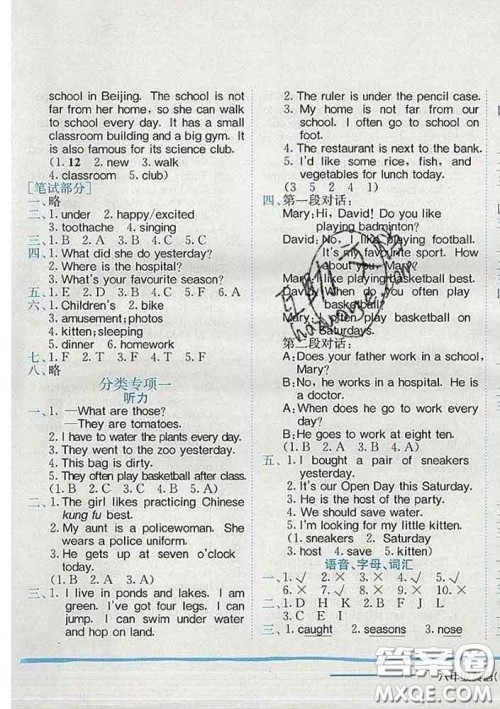 school in Beijing. The school is not
far from her home, so she can walk
to school every day. It has a small
classroom building and a big gym. It
is also famous for its science club.
(1. 12 2. new 3. walk
4. classroom 5. club)
[笔试部分]
一、略
二、1. under 2. happy/excited
3. toothache 4. singing
三、1. B 2. A 3. B 4. A 5. A
四、1. What did she do yesterday?
2. Where is the hospital?
3. What's your favourite season?
五、1. E 2. D 3. B 4. A 5. C
六、1. Children's 2. bike
3. amusement; photos
4. kitten; sleeping
5. dinner 6. homework
七、1. F 2. T 3. F 4. T 5. F
八、略
分类专项一
听力
一、1. —What are those?
—They are tomatoes.
2. I have to water the plants every day.
3. They went to the zoo yesterday.
4. This bag is dirty.
5. They often play basketball after class.
(1. B 2. C 3. A 4. B 5. A)
二、1. The girl likes practicing Chinese
kung fu best.
2. My aunt is a policewoman. She
wears a police uniform.
3. He gets up at seven o'clock
today.
(1. B 2. B 3. A)
三、1. I live in ponds and lakes. I am
green. I've got four legs. I can
jump. I can swim under water
and hop on land.
2. The ruler is under the pencil case.
3. My home is far from our
school. I often go to school on
foot.
4. The restaurant is next to the bank.
5. I'd like some rice, fish, and
vegetables for lunch today.
(3 5 2 4 1)
四、第一段对话:
Mary: Hi, David! Do you like
playing badminton?
David: No. I like playing football.
It's my favourite sport. How
about you, Mary?
Mary: I like playing basketball best.
David: When do you often play
basketball?
Mary: I often play basketball on
Saturdays.
第二段对话:
A: Does your father work in a school,
Mary?
B: No, he works in a hospital. He is
a doctor.
A: When does he go to work every
day?
B: He goes to work at eight ten.
(1. B 2. B 3. A 4. A 5. B)
五、1. I bought a pair of sneakers
yesterday.
2. It's our Open Day this Saturday.
3. He is the host of the party.
4. We should save water.
5. I'm looking for my little kitten.
(1. sneakers 2. Saturday
3. host 4. save 5. kitten)
语音、字母、词汇
一、1. √ 2. × 3. × 4. √ 5. √
6. × 7. √ 8. × 9. × 10. ×
二、1. D H K L 2. B F G
3. C E I
三、1. caught 2. seasons 3. nose
答案卷
MXQE.COM